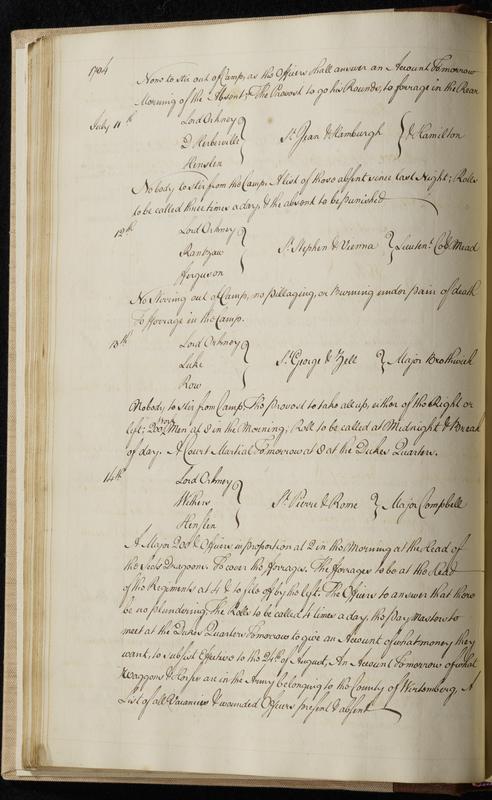 1704
None to stir out of Camp, as the Officers shall answer an Account Tomorrow
Morning of the Absent; The Provost to go his Rounds, to forrage in the Rear
July 11th Lord Orkney
D. Herberville } St. Jean & Hamburgh } & Hamilton
Hensten
Nobody to stir from the Camp. A list of those absent since last Night; Rolls
to be called three times a day, & the absent to be punished
12th Lord Orkney
Rantzaw } St. Stephen & Vienna } Lieutent. Coll. Mead
Ferguson
No Stirring out of Camp, no pillaging, or Burning under pain of death
To fforrage in the Camp.
13th Lord Orkney
Luke } St. George & Zell } Major Brothwick
Row
Nobody to stir from Camp. The Provost to take all up, either of the Right or
left; 200 Men at 2 in the Morning; Roll to be called at Midnight & Break
of day. A Court Martial Tomorrow at 8 at the Dukes Quarters.
14th Lord Orkney
Withers } St. Pierre & Rome } Major Campbell
Henslen
A Major 200 & Officers in proportion at 2 in the Morning at the Head of
the Scots Dragoons. To cover the fforrages. The fforrages to be at the Head
of the Regiments at 4 & to file off by the left. The Officers to answer that there
be no plundering. The Rolls to be called 4 times a day, the Pay Masters to
meet at the Dukes Quarters Tomorrow to give an Account of what money they
want, to subsist Effectives to the 24th of August, An Account Tomorrow of what
Waggons & Horses are in the Army belonging to the County of Wirtemberg. A
List of all Vacancies & wounded Officers present & absent